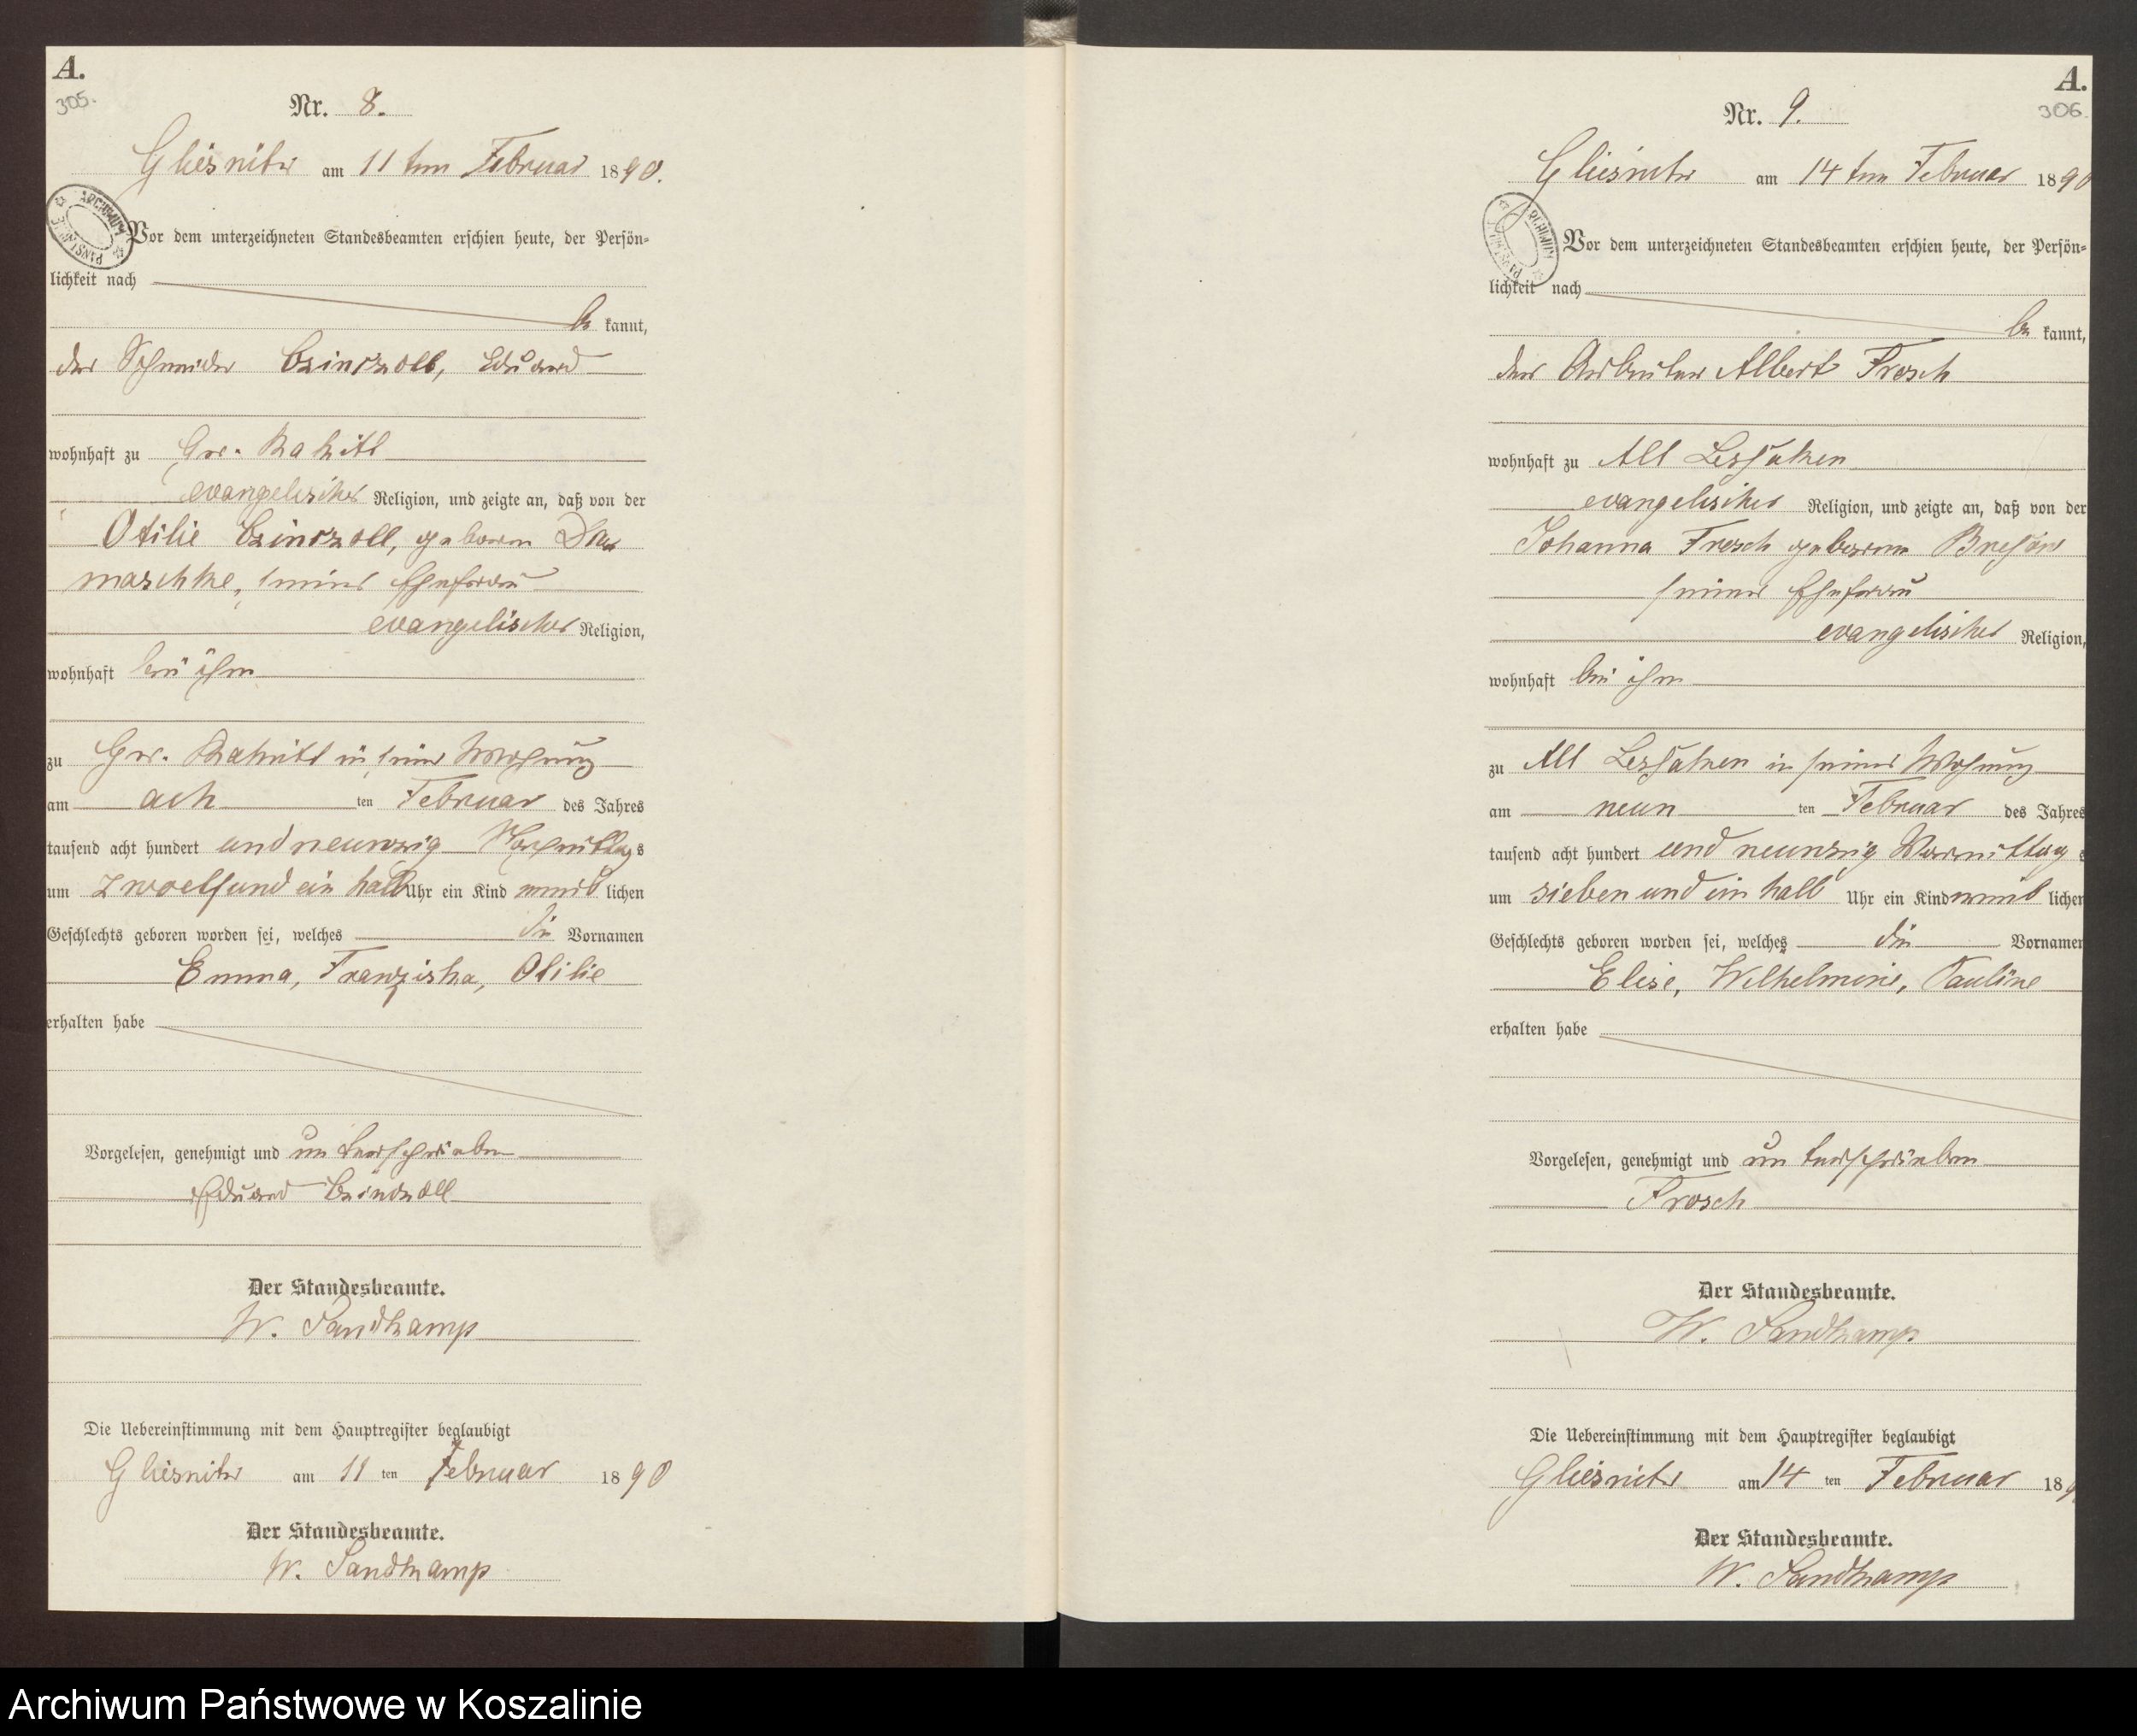 A.
305.
Nr. 8.
Gliesnitz am 11ten Februar 1890.
Vor dem unterzeichneten Standesbeamten erschien heute, der Persön-
lichkeit nach
be kannt,
der Schneider Eduard
wohnhaft zu Gr. Rakitt
evangelischer Religion, und zeigte an, daß von der
Otilie geborene Da
maschke, seiner Ehefrau
evangelischer Religion,
wohnhaft bei ihm
zu Gr. Rakitt in seiner Wohnung
am ach ten Februar des Jahres
tausend acht hundert und neunzig Nachmittags
um zwoelf und ein halb Uhr ein Kind weib lichen
Geschlechts geboren worden sei, welches die Vornamen
Emma, Franziska, Otilie
erhalten habe
Vorgelesen, genehmigt und unterschrieben
Eduard
Der Standesbeamte.
W. Sandkamp
Die Uebereinstimmung mit dem Hauptregister beglaubigt
Gliesnitz am 11 ten Februar 1890
Der Standesbeamte.
W. Sandkamp
A.
306.
Nr. 9.
Gliesnitz am 14ten Februar 1890
Vor dem unterzeichneten Standesbeamten erschien heute, der Persön-
lichkeit nach
be kannt,
der Arbeiter Albert Frosch
wohnhaft zu Alt
evangelischer Religion, und zeigte an, daß von der
Johanna Frosch geborene
seiner Ehefrau
evangelischer Religion,
wohnhaft bei ihm
zu Alt in seiner Wohnung
am neun ten Februar des Jahres
tausend acht hundert und neunzig Vormittag s
um sieben und ein halb Uhr ein Kind weib lichen
Geschlechts geboren worden sei, welches die Vornamen
Elise, Wilhelmine, Pauline
erhalten habe
Vorgelesen, genehmigt und unterschrieben
Frosch
Der Standesbeamte.
W. Sandkamp
Die Uebereinstimmung mit dem Hauptregister beglaubigt
Gliesnitz am 14 ten Februar 189
Der Standesbeamte.
W. Sandkamp
Archiwum Państwowe w Koszalinie